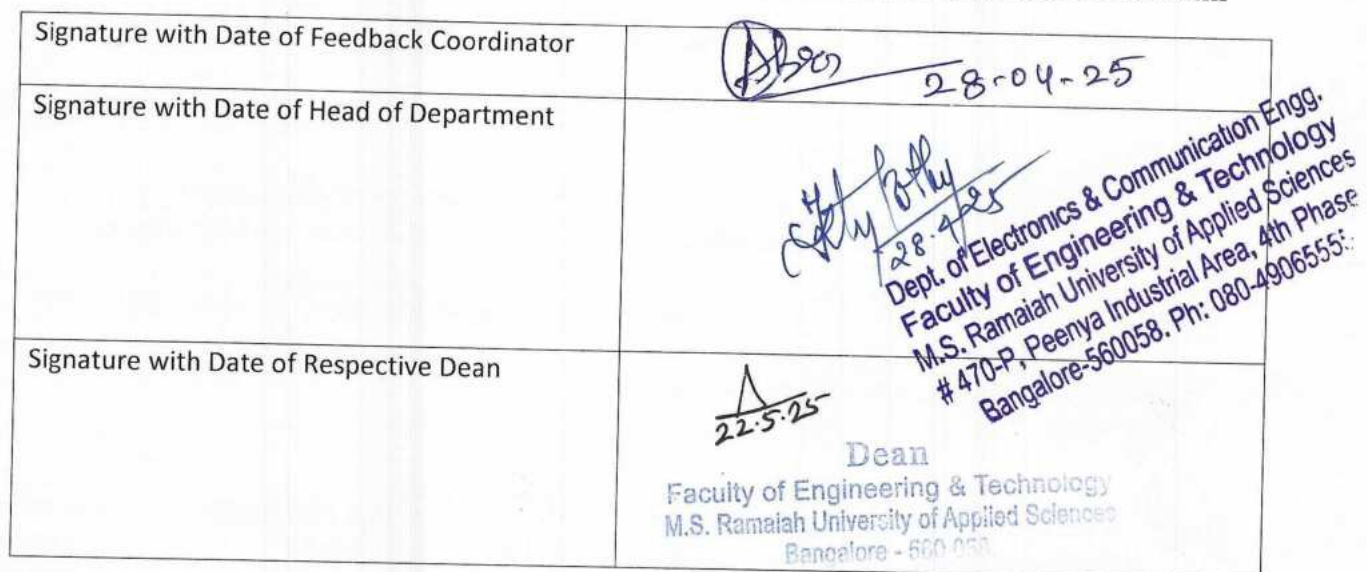 Signature with Date of Feedback Coordinator
28-04-25
Signature with Date of Head of Department
28.4.25
Dept. of Electronics & Communication Engg.
Faculty of Engineering & Technology
M.S. Ramaiah University of Applied Sciences
# 470-P, Peenya Industrial Area, 4th Phase
Bangalore-560058. Ph: 080-4906555
Signature with Date of Respective Dean
22.5.25
Dean
Faculty of Engineering & Technology
M.S. Ramaiah University of Applied Sciences
Bangalore - 560 058.